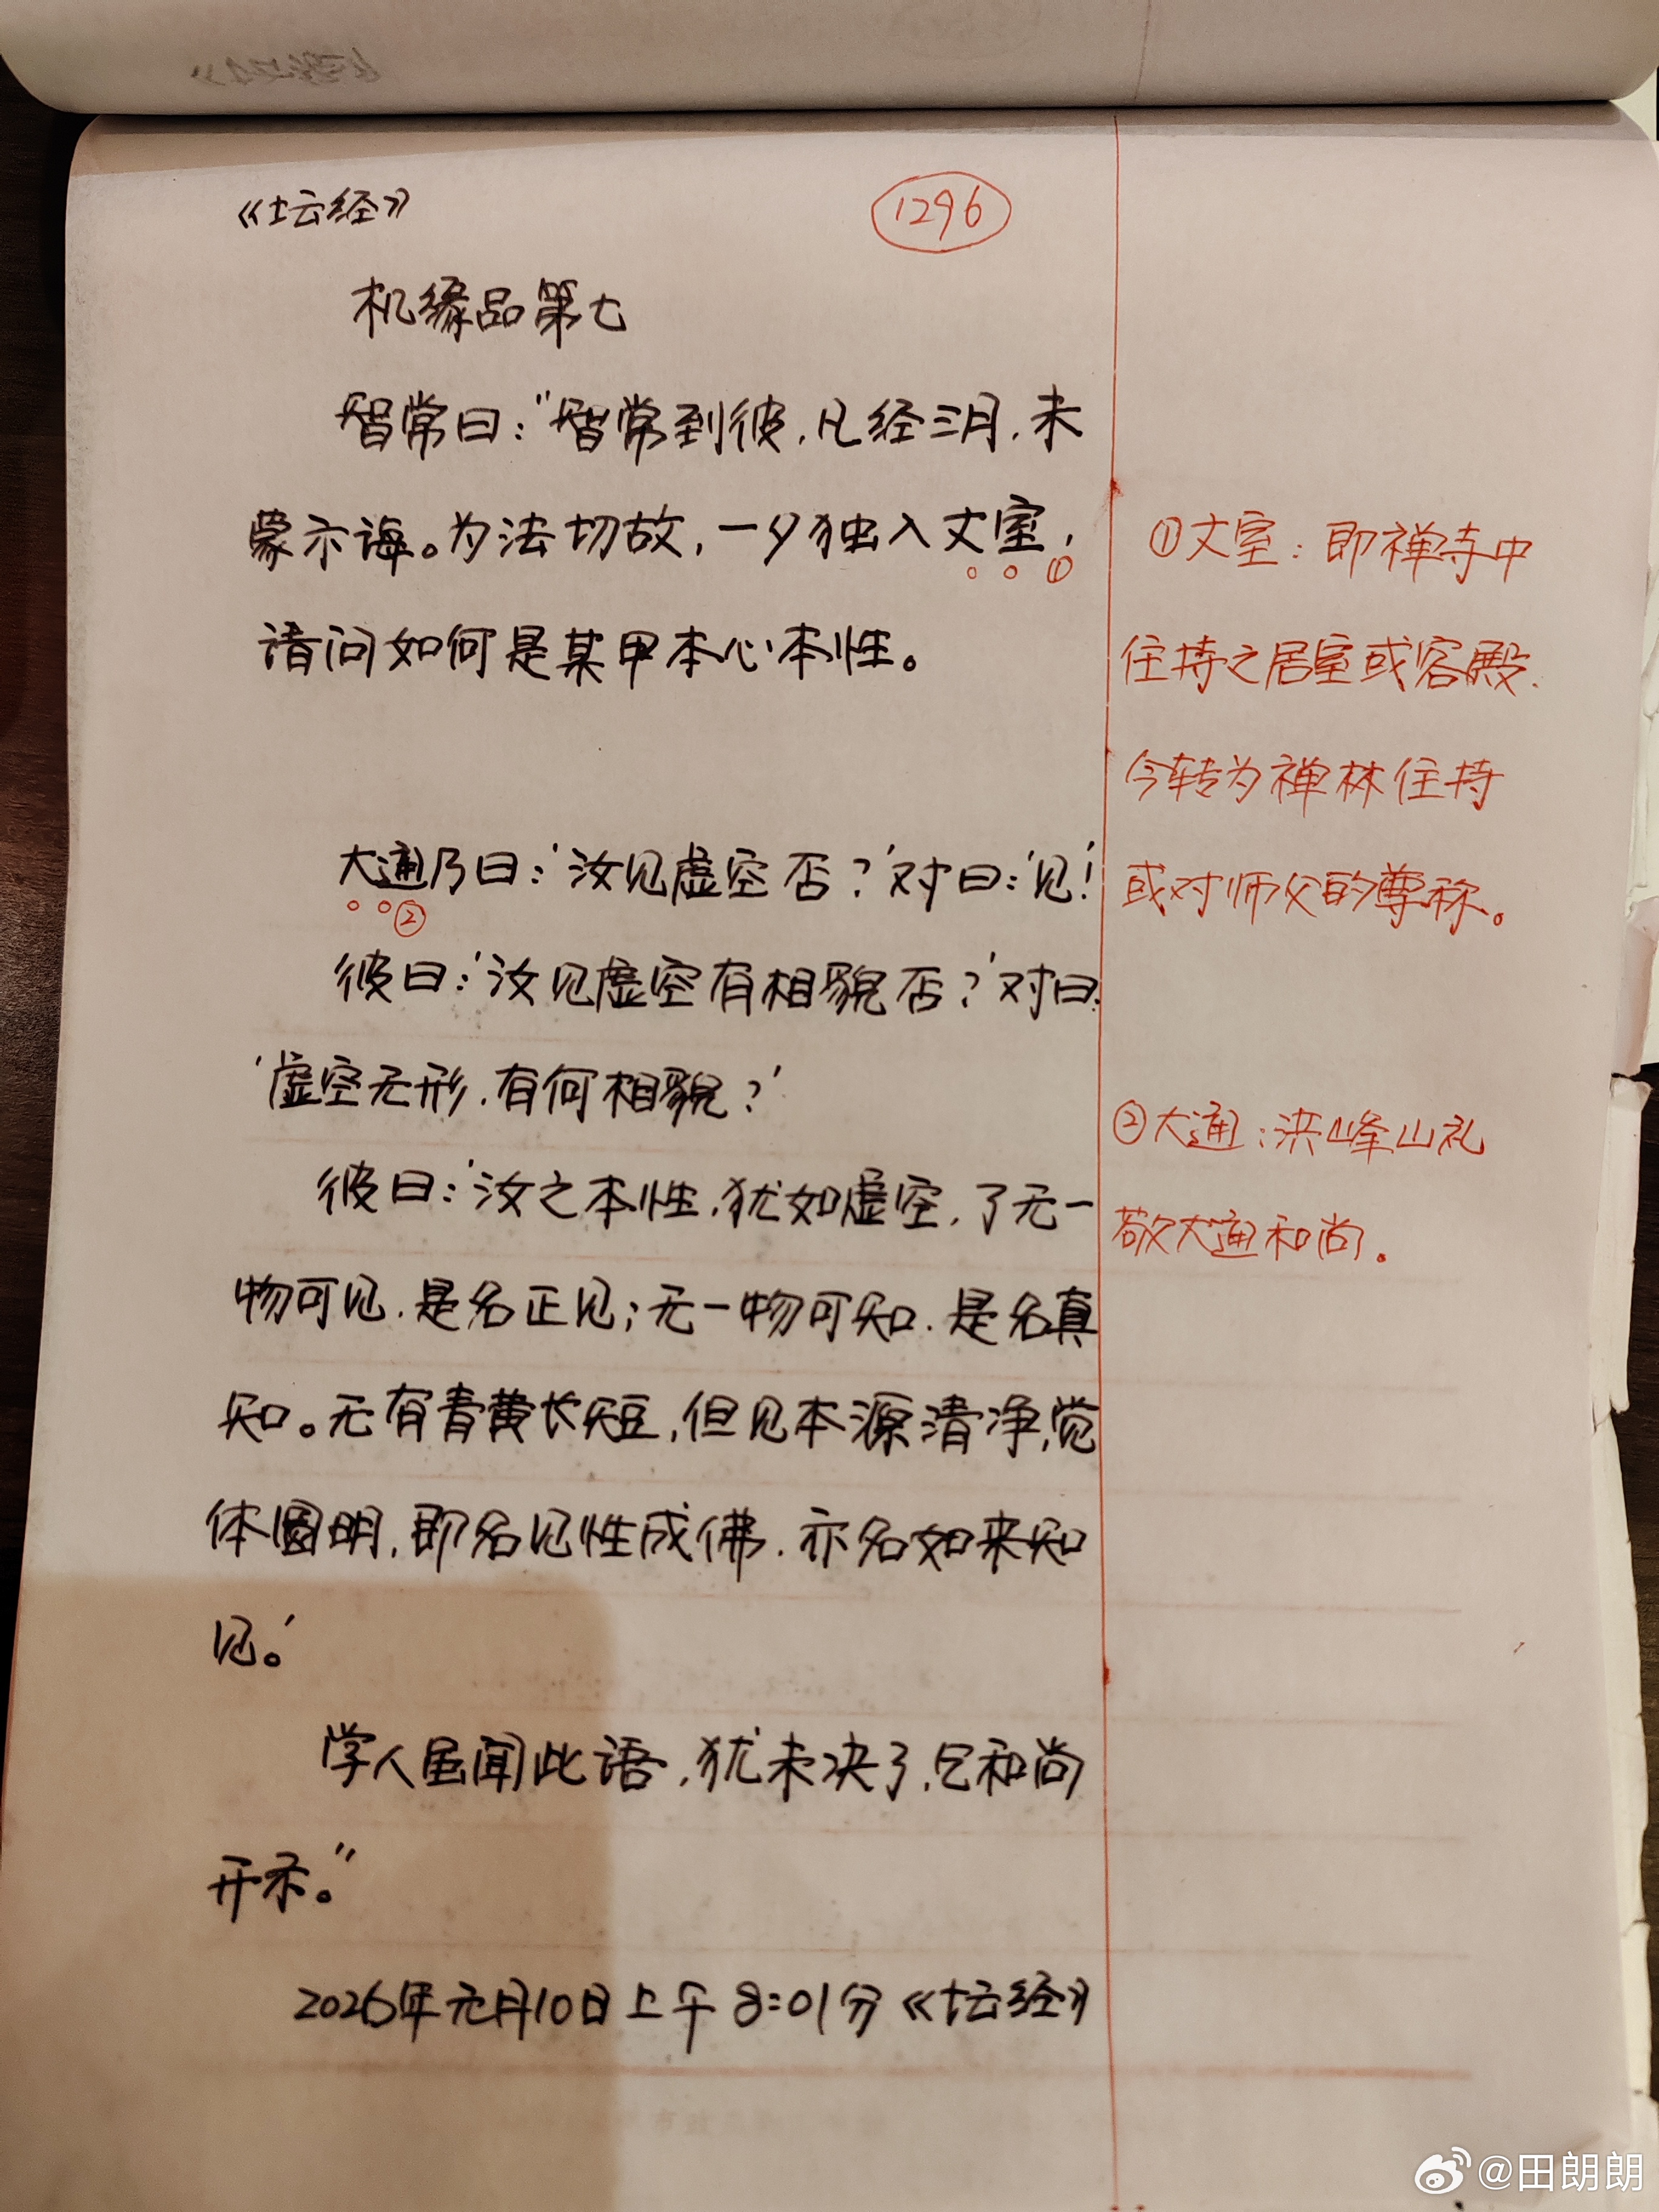 《坛经》
1296
机缘品第七
智常曰："智常到彼,凡经三月,未
蒙示诲。为法切故,一夕独入丈室,①
请问如何是某甲本心本性。
大通乃曰:'汝见虚空否?'对曰:'见!'
②
彼曰:'汝见虚空有相貌否?'对曰:
'虚空无形,有何相貌?'
彼曰:'汝之本性,犹如虚空,了无一
物可见,是名正见;无一物可知,是名真
知。无有青黄长短,但见本源清净,觉
体圆明,即名见性成佛,亦名如来知
见。'
学人虽闻此语,犹未决了,乞和尚
开示。"
2026年元月10日上午8:01分《坛经》
①丈室:即禅寺中
住持之居室或客殿.
今转为禅林住持
或对师父的尊称。
②大通:洪峰山礼
敬大通和尚.
@田朗朗